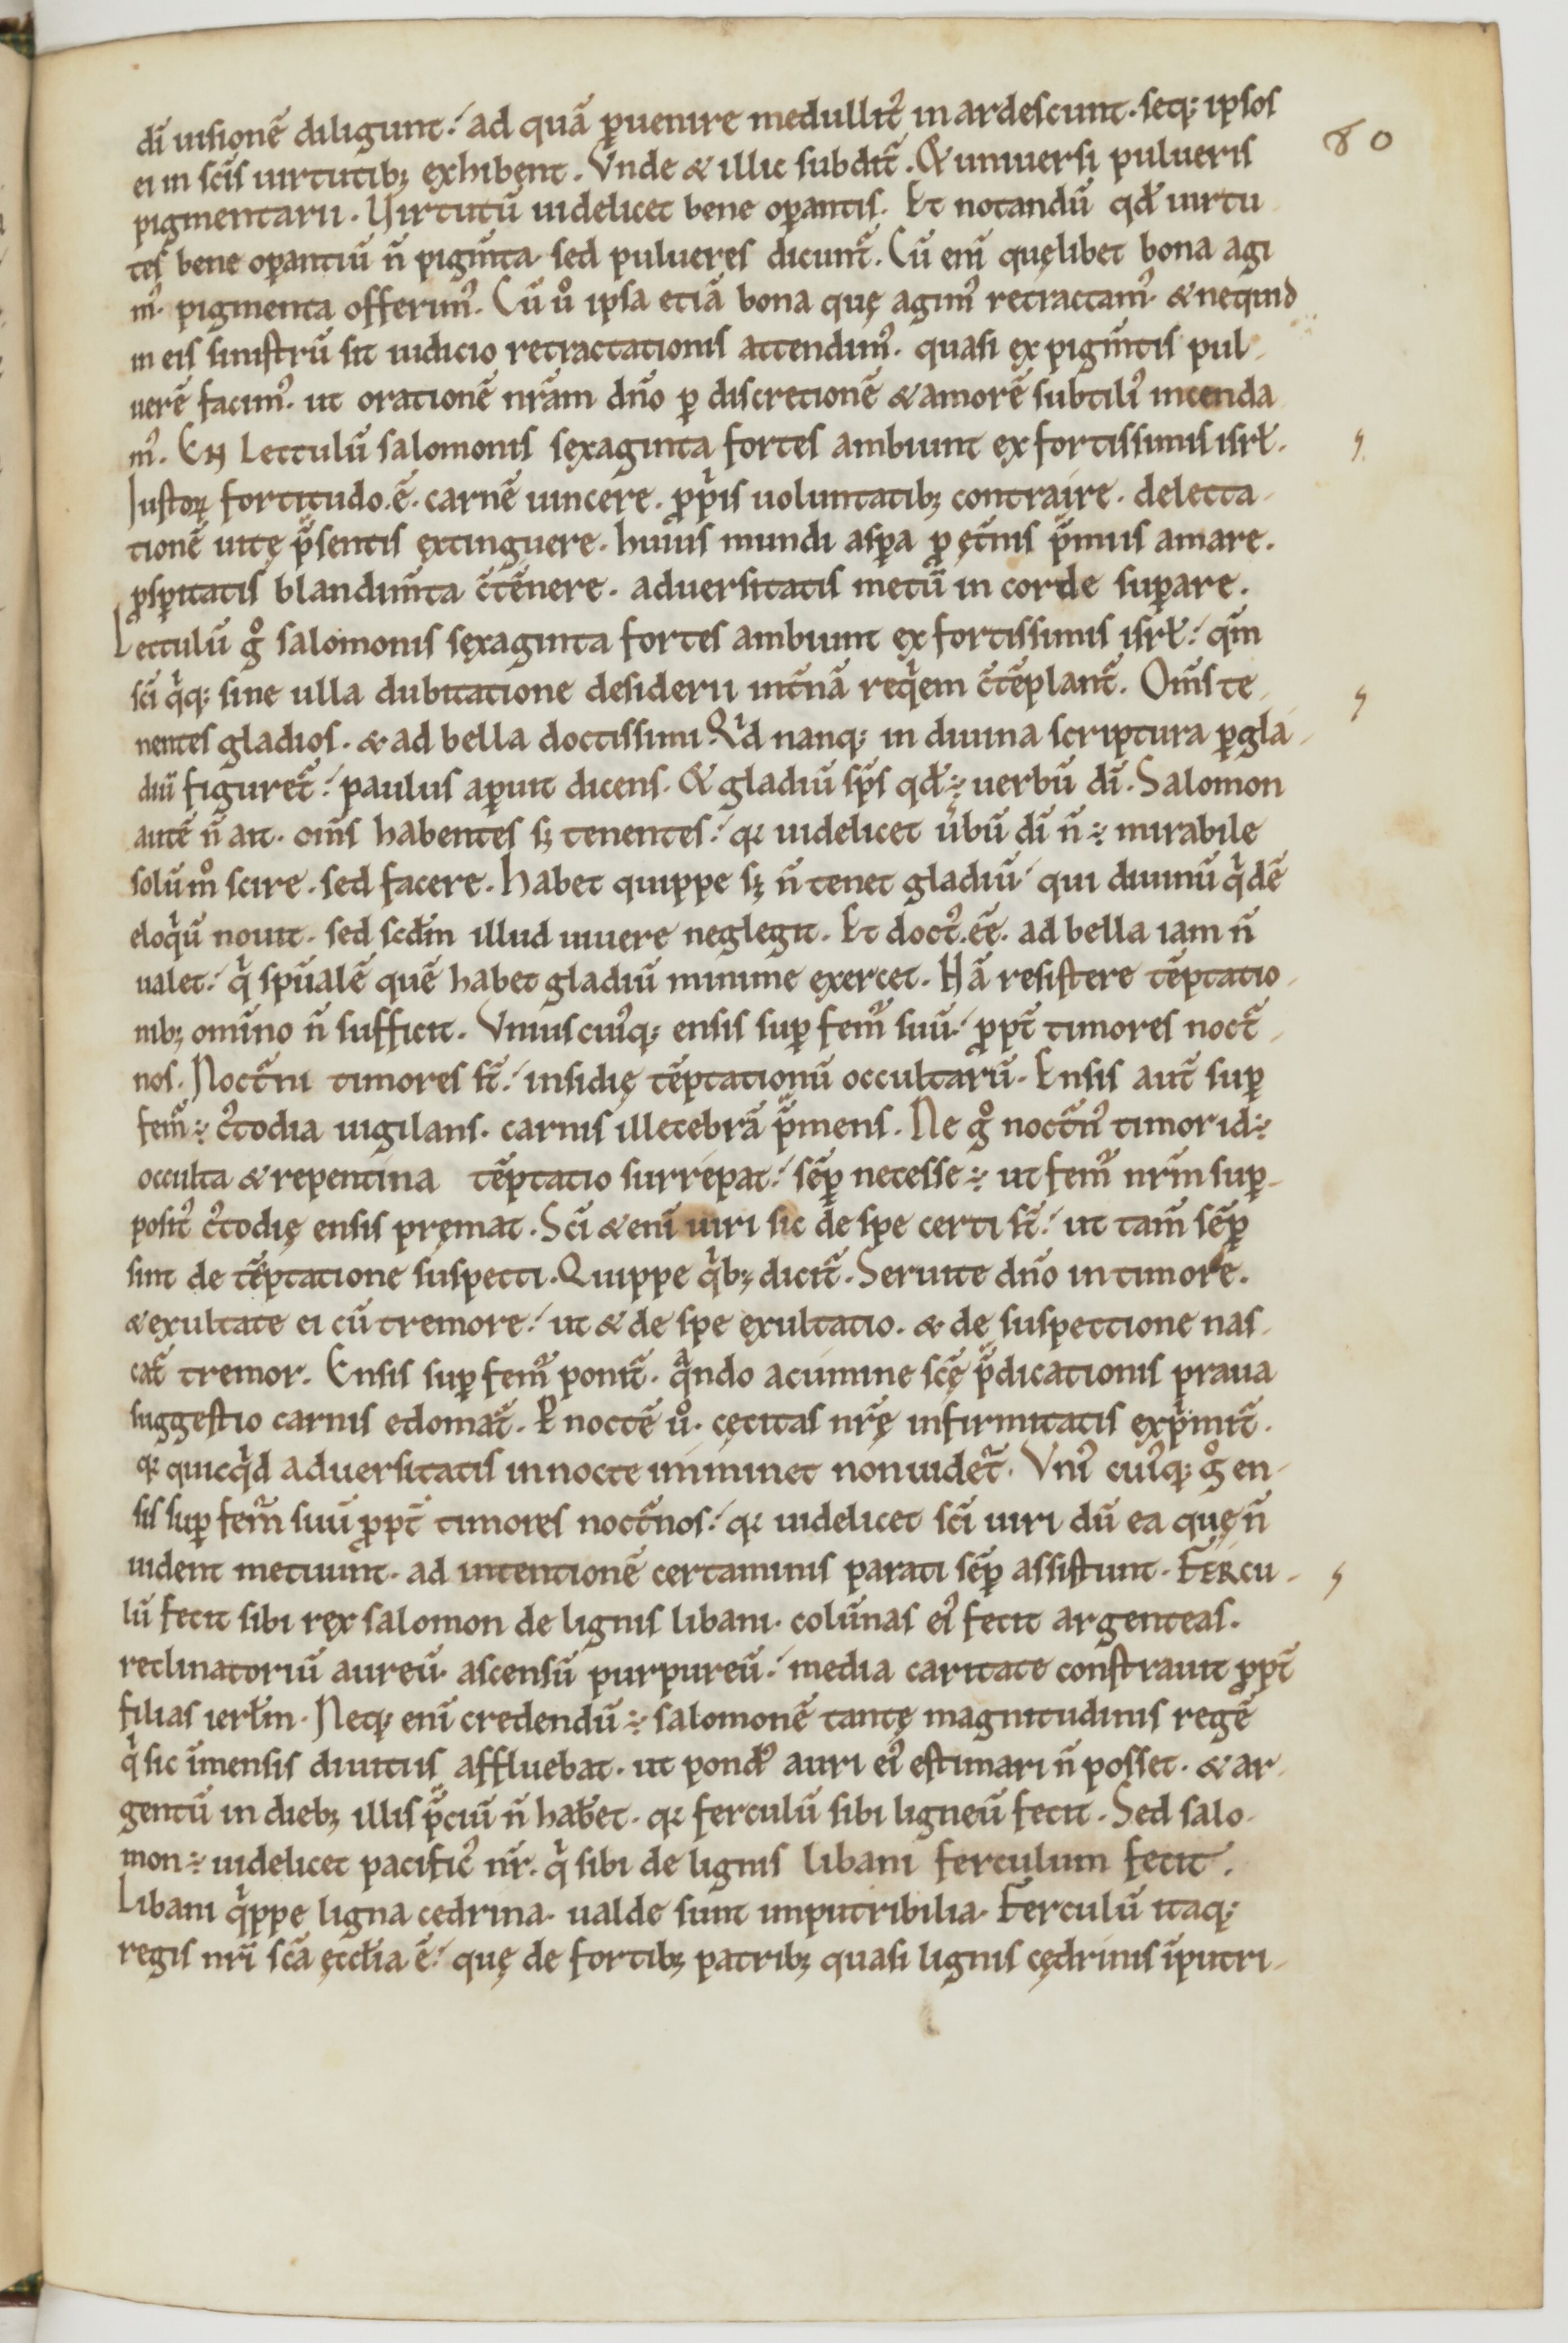 dī uisionē diligunt! ad quā ꝑuenire medullit᷒ in ardescunt. seq; ipsos
80
ei in scīs uirtutib; exhibent. Vnde & illic subdit̄. & uniuersi pulueris
pigmentarii. Virtutū uidelicet bene oꝑantis. Et notandū qđ uirtu
tes bene oꝑantiū n̄ pigm̄ta sed pulueres dicunt̄. Cū enī quęlibet bona agi
m᷒ pigmenta offerim᷒. Cū ů ipsa etiā bona quę agim᷒ retractam᷒ & nequid
in eis sinistrū sit iudicio retractationis attendim᷒. quasi ex pigm̄tis pul
uerē facim᷒. ut orationē nr̄am dn̄o ꝑ discretionē & amorē subtili᷒ incenda
m᷒. EN Lectulū salomonis sexaginta fortes ambiunt ex fortissimis isrł.
Iustoꝝ fortitudo .ē. carnē uincere. ꝓpͥis uoluntatib; contraire. delecta
tionē uitę p̄sentis extinguere. huius mundi asꝑa ꝓ ęt̄nis p̄miis amare.
ꝓsꝑitatis blandim̄ta c̄tēnere. aduersitatis metū in corde suꝑare.
Lectulū g̊ salomonis sexaginta fortes ambiunt ex fortissimis isrł! qm̄
scī qͥq; sine ulla dubitatione desiderii int̄nā reqͥem c̄tēplant̄. Om̄s te
nentes gladios. & ad bella doctissimi. Qͥd nanq; in diuina scriptura ꝑ gla
diū figuret̄! paulus aꝑuit dicens. & gladiū sp̄s qđ ÷ uerbū dī. Salomon
autē n̄ ait. om̄s habentes s; tenentes! qꝛ uidelicet u̓bū dī n̄ ÷ mirabile
solūm̊ scire. sed facere. Habet quippe s; n̄ tenet gladiū! qui diuinū qͥdē
eloqͥū nouit. sed scđm illud uiuere neglegit. Et doct᷒ .eē. ad bella iam n̄
ualet! qͥ spūalē quē habet gladiū minime exercet. Nā resistere tēptatio
nib; omīno n̄ sufficit. Vniuscui᷒q; ensis suꝑ fem᷒ suū! ꝓpt̄ timores noct̄
nos. Noct̄ni timores st̄! insidię tēptationū occultarū. Ensis aut̄ suꝑ
fem᷒ ÷ c᷒todia uigilans. carnis illecebrā p̄mens. Ne g̊ noct̄n᷒ timor id ÷
occulta & repentina tēptatio surrepat! sēꝑ necesse ÷ ut fem᷒ nr̄m suꝑ
posit᷒ c᷒todię ensis pręmat. Scī & enī uiri sic de spe certi st̄! ut tam̄ sēꝑ
sint de tēptatione suspecti. Quippe qͥb; dicit̄. Seruite dn̄o in timore.
& exultate ei cū tremore! ut & de spe exultatio. & de suspectione nas
cat̄ tremor. Ensis suꝑ fem᷒ ponit̄. qᵃndo acumine scę̄ p̄dicationis praua
suggestio carnis edomat̄. P noctē ů. cęcitas nr̄ę infirmitatis expͥmit̄.
qꝛ quicqͥd aduersitatis in nocte imminet non uidet̄. Vni᷒ cui᷒q; g̊ en
sis suꝑ fem᷒ suū ꝓpt̄ timores noct̄nos! qꝛ uidelicet scī uiri dū ea quę n̄
uident metuunt. ad intentionē certaminis parati sēꝑ assistunt. FERCU
lū fecit sibi rex salomon de lignis libani. colūnas ei᷒ fecit argenteas.
reclinatoriū aureū. ascensū purpureū! media caritate constrauit ꝓpt̄
filias ierłm. Neq; enī credendū ÷ salomonē tantę magnitudinis regē
qͥ sic īmensis diuitiis affluebat. ut pond᷒ auri ei᷒ estimari n̄ posset. & ar
gentū in dieb; illis p̄ciū n̄ haƀet. qꝛ ferculū sibi ligneū fecit. Sed salo
mon ÷ uidelicet pacific᷒ nr̄. qͥ sibi de lignis libani ferculum fecit.
Libani qͥppe ligna cedrina. ualde sunt imputribilia. Ferculū itaq;
regis nr̄i scā ęccłia ē! quę de fortib; patrib; quasi lignis cędrinis īputri